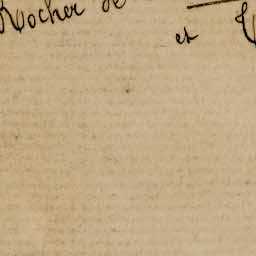 Rocher de
et